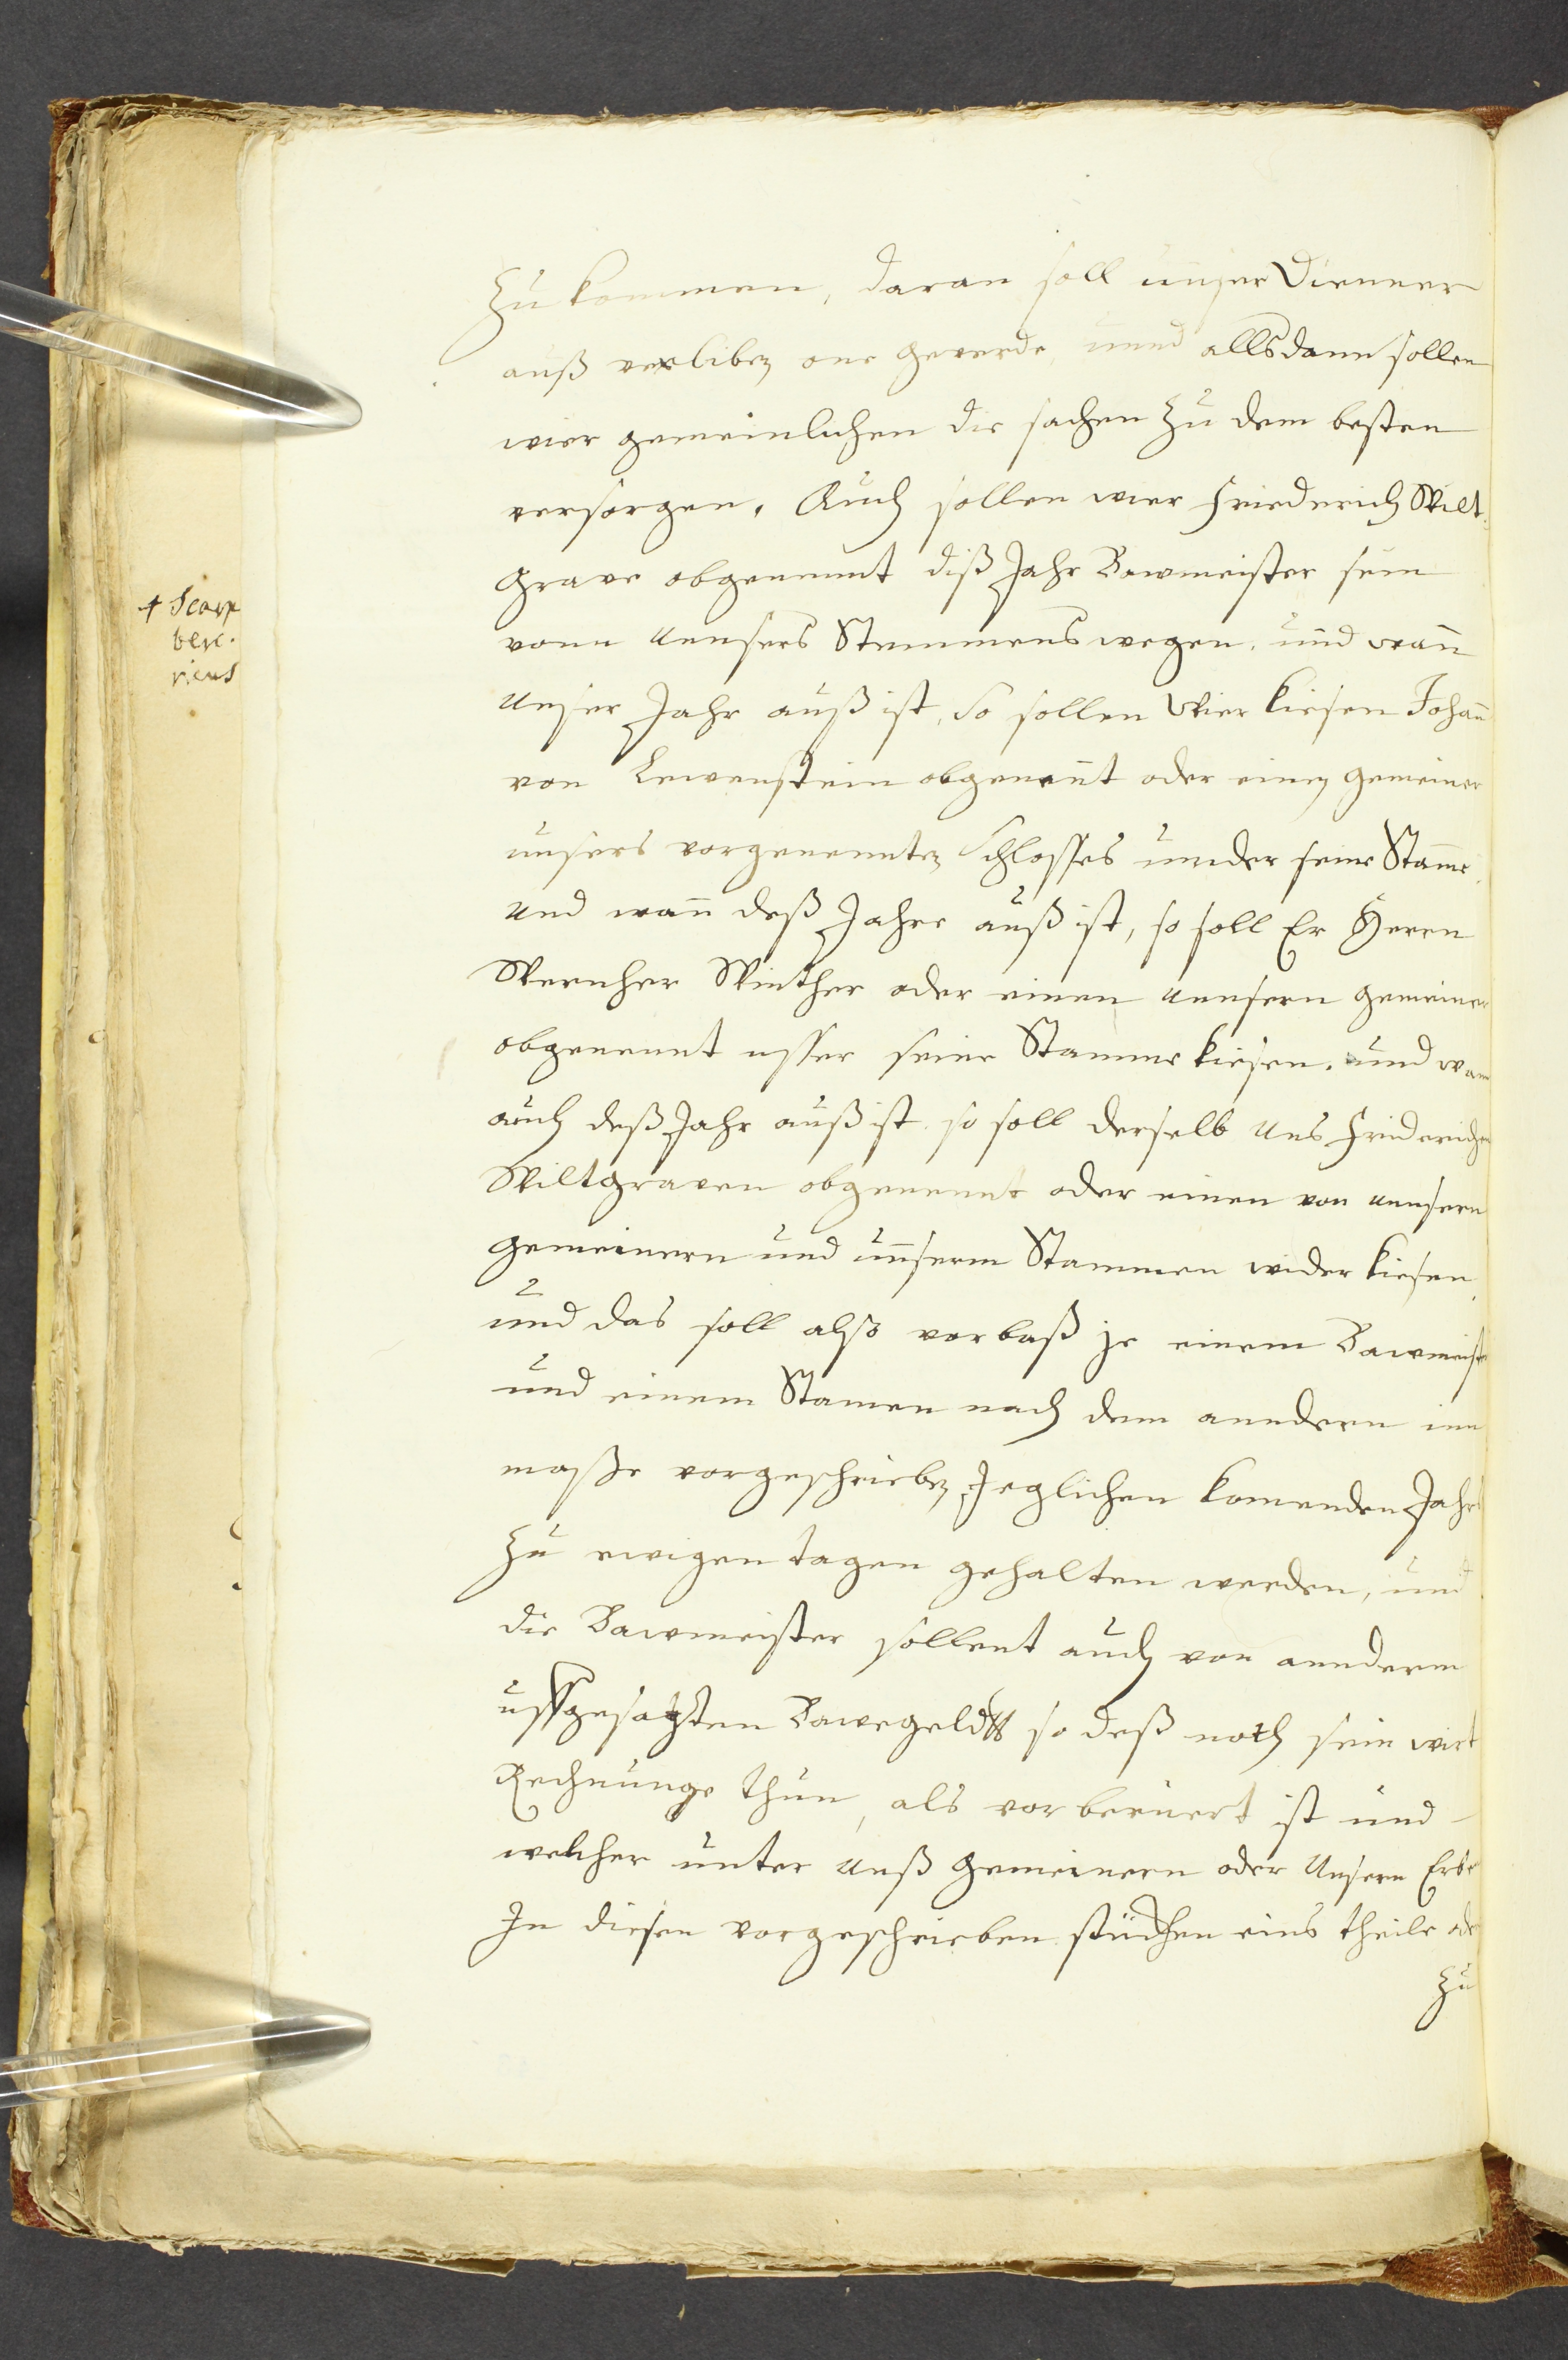 zu kommen, daran soll unser Dienner
auß verlibez one geverde, unnd allsdann sollen
wier gemeinlichen die sachen zu dem besten
versorgen. Auch sollen wier Friederich Wilt:
grave obgenennt diß Jahr Bawmeister sein
vonn unnsers Stemmens wegen, und wann
unser Jahr auß ist, so sollen wier kiesen Johann
von Lewenstein obgenannt oder einen gemeiner
unsers vorgenenntez schlosses unnder seine Stamme
und wann deß Jahre auß ist, so soll Er Herrn
Wernher Winther oder einen unnsern gemeiner
obgenennt usser seine Stamme kiesen. und wann
auch deß Jahr auß ist so soll derselb uns Friderichen
Wiltgraven obgenennt oder einen von unnsern
gemeinern und unnserm Stammen wider kiesen,
und das soll also vorbaß je einem Bawmeister
und einem Stamen nach dem anndern inn
masse vorgeschriebez, Jeglichen komenden Jahrs
zu ewigen tagen gehalten werden, und
die Bawmeister sollent auch von annderm
uffgesatzten Bawegeldtt so deß noth sein wirt
Rechnunge thun, als vor beruert ist und
welcher unter unß gemeinern oder unsern Erbe
In diesen vorgeschrieben stückhen eins theils oder
zu